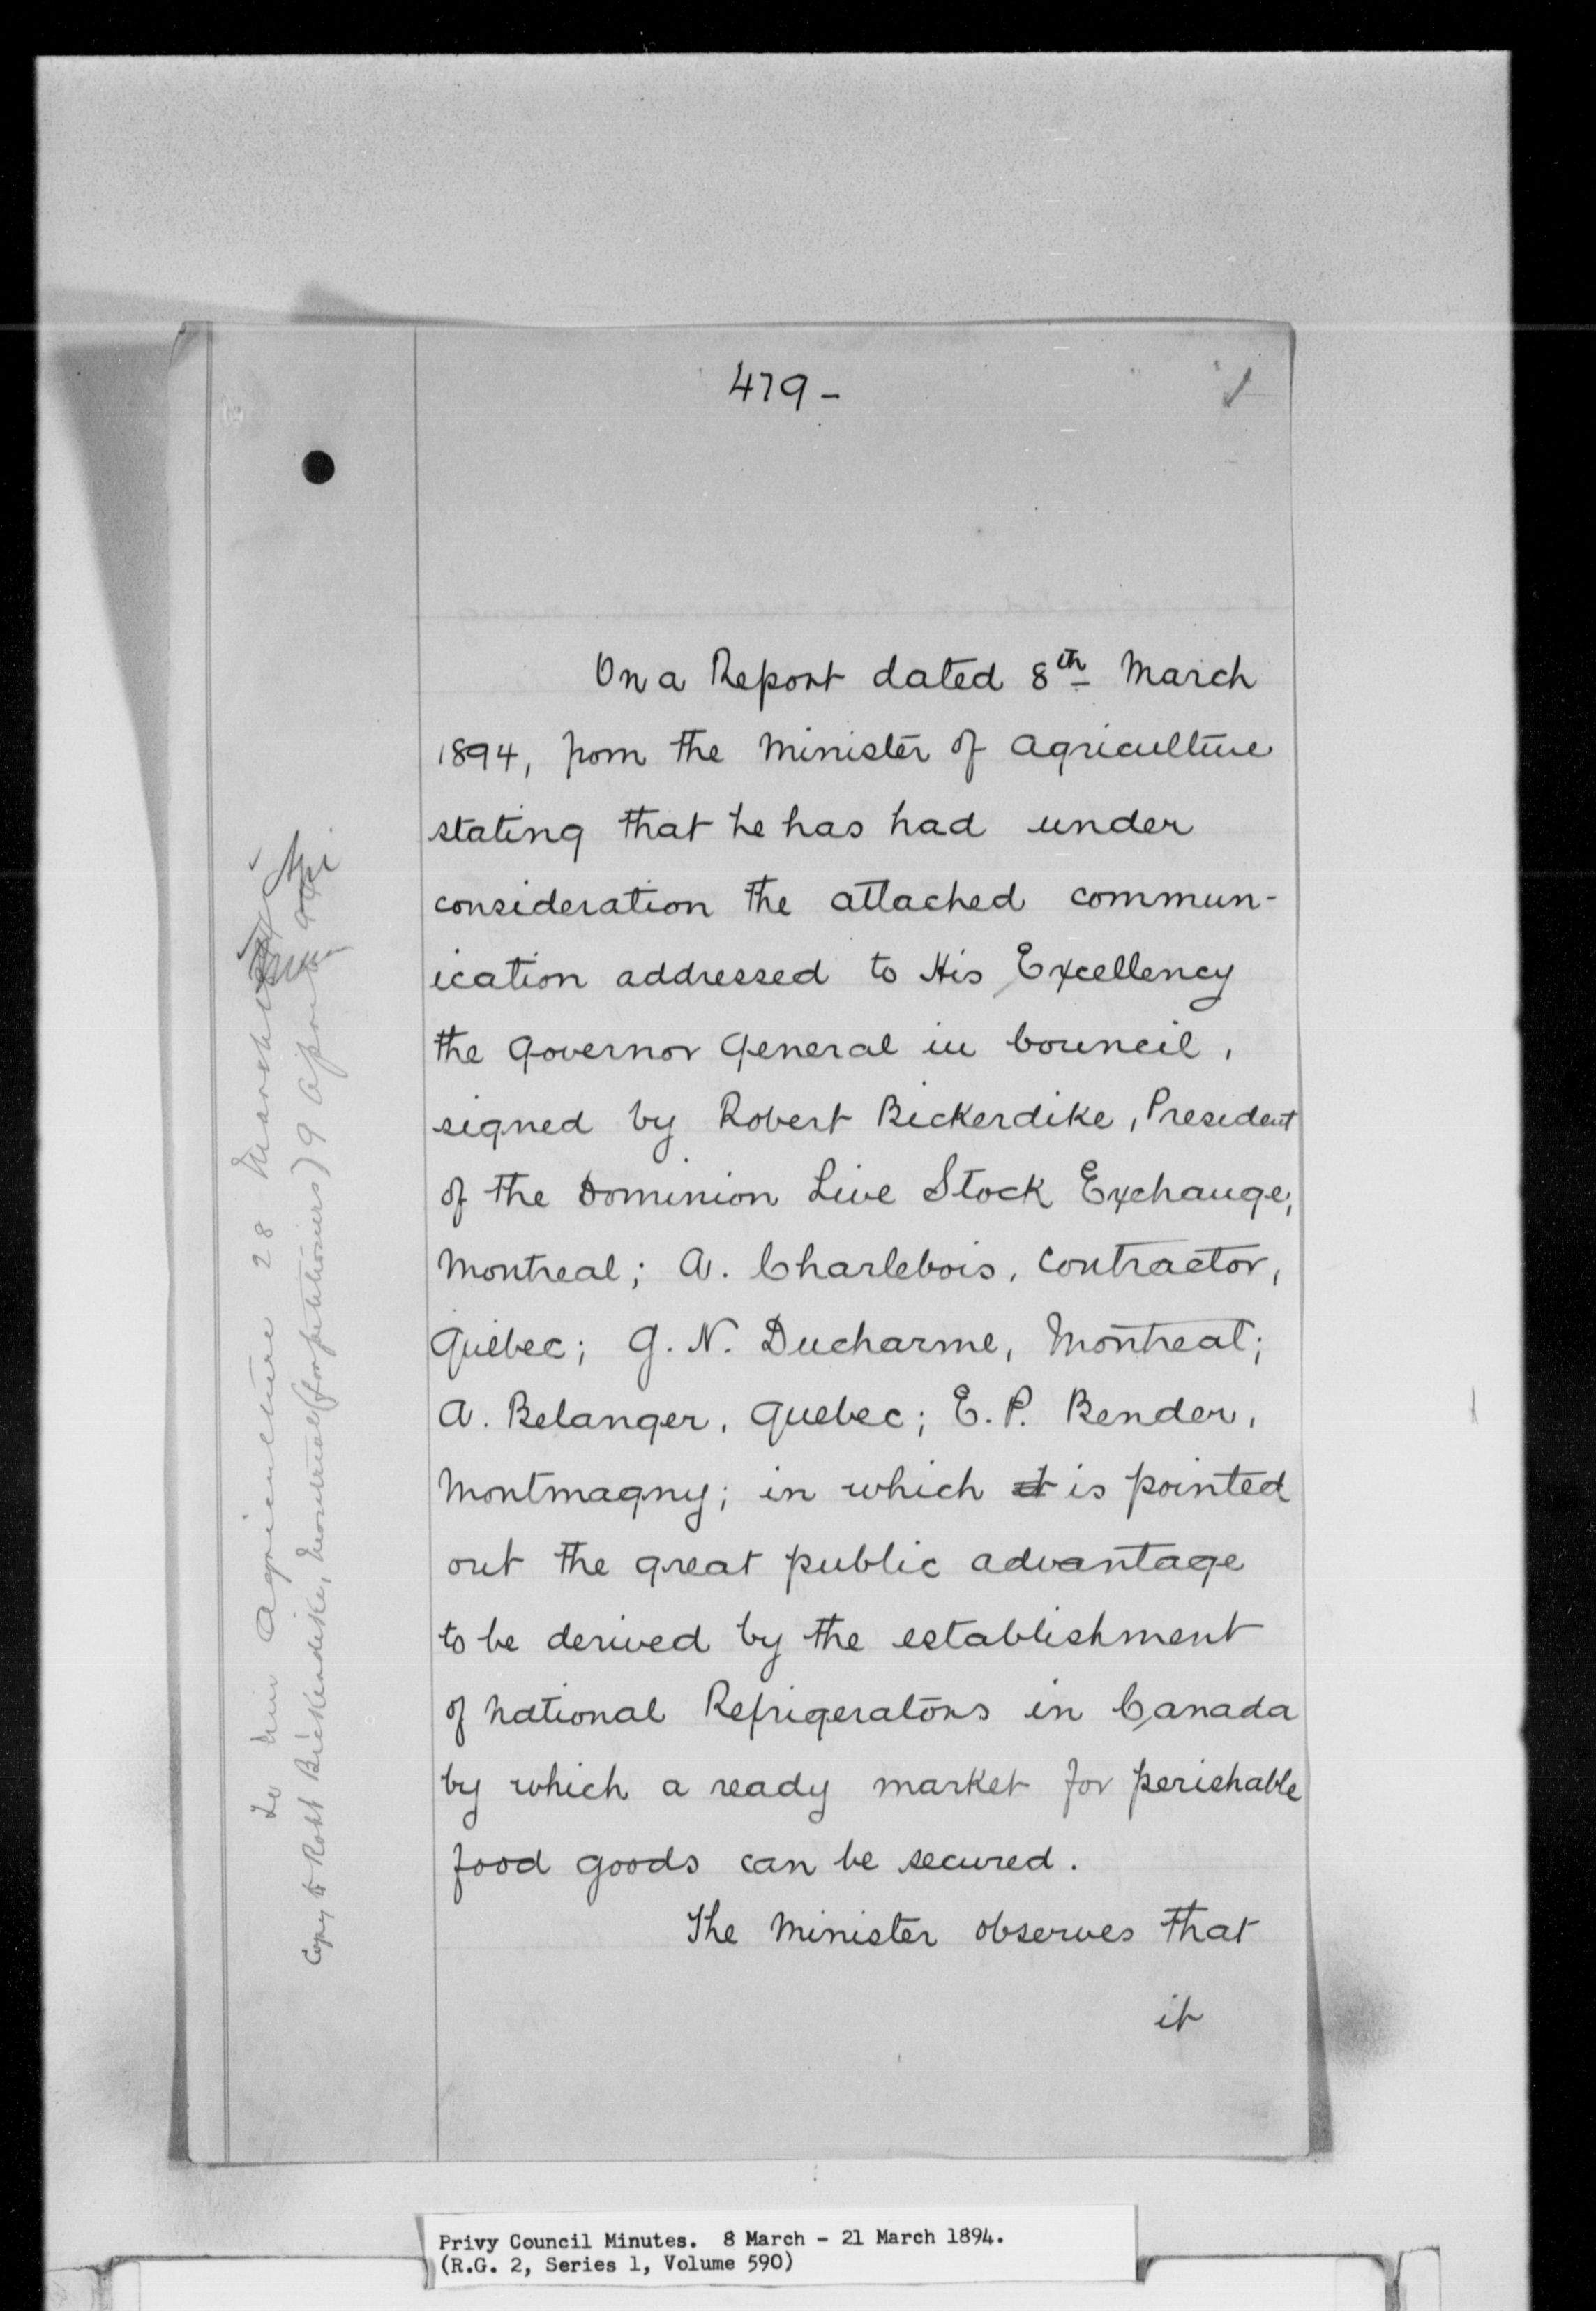 479-
On a Report dated 8th March
1894, from the Minister of Agriculture
stating that he has had under
consideration the attached commun-
ication addressed to His Excellency
the Governor General in Council,
signed by Robert Bickerdike, President
of the Dominion Live Stock Exchange,
Montreal; A. Charlebois, Contractor,
Quebec; G. N. Ducharme, Montreal;
A. Belanger, Quebec; E. P. Bender,
Montmagny; in which it is pointed
out the great public advantage
to be derived by the establishment
of National Refrigerators in Canada
by which a ready market for perishable
food goods can be secured.
The Minister observes that
it
To Min Agriculture 28 March
Copy to Robt Bickerdike, Montreal (for petitioners) 9 April
Privy Council Minutes. 8 March - 21 March 1894.
(R.G. 2, Series 1, Volume 590)